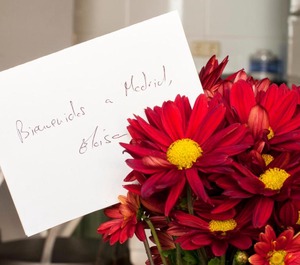 Bienvenidos a Madrid,
Eloisa